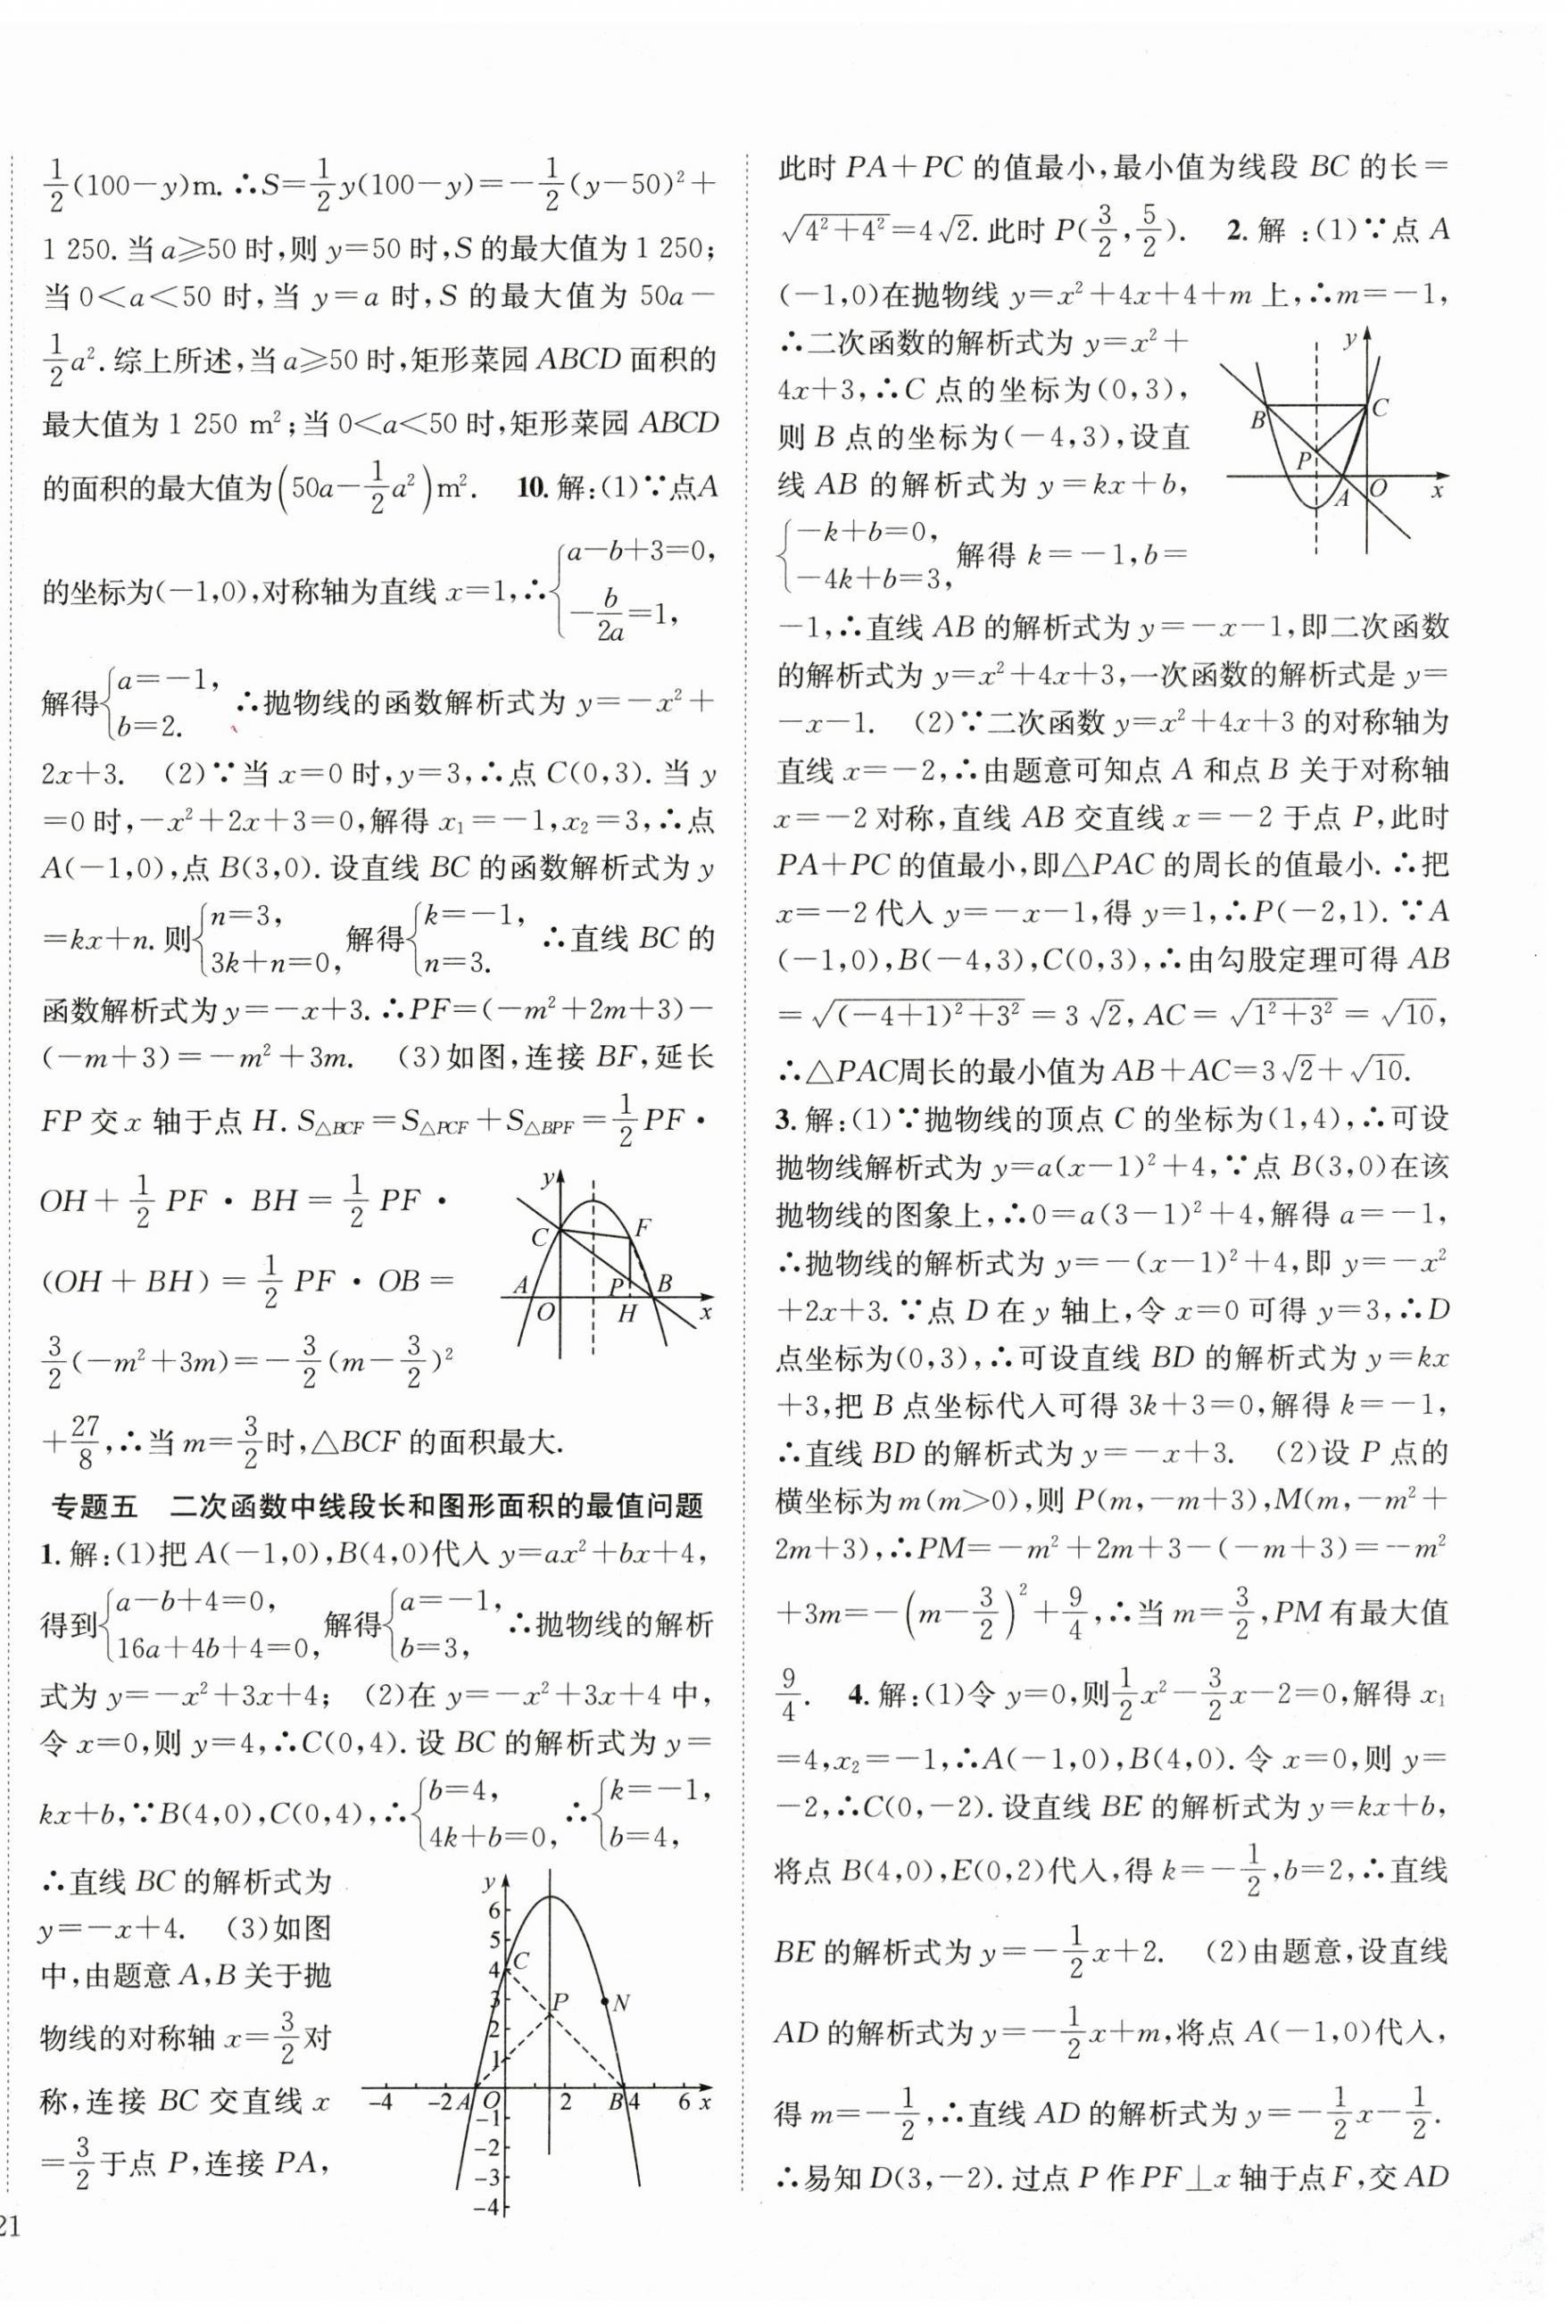 $\frac{1}{2}$(100-y)m.∴S=$\frac{1}{2}$y(100-y)=-$\frac{1}{2}$(y-50)²+
1 250.当a⩾50时,则y=50时,S的最大值为1 250;
当0<a<50时,当y=a时,S的最大值为50a-
$\frac{1}{2}$a².综上所述,当a⩾50时,矩形菜园ABCD面积的
最大值为1 250 m²;当0<a<50时,矩形菜园ABCD
的面积的最大值为(50a-$\frac{1}{2}$a²)m². 10.解:(1)∵点A
的坐标为(-1,0),对称轴为直线x=1,∴{a-b+3=0, -$\frac{b}{2a}$=1,
解得{a=-1, b=2. ∴抛物线的函数解析式为y=-x²+
2x+3. (2)∵当x=0时,y=3,∴点C(0,3).当y
=0时,-x²+2x+3=0,解得x₁=-1,x₂=3,∴点
A(-1,0),点B(3,0).设直线BC的函数解析式为y
=kx+n.则{n=3, 3k+n=0, 解得{k=-1, n=3. ∴直线BC的
函数解析式为y=-x+3.∴PF=(-m²+2m+3)-
(-m+3)=-m²+3m. (3)如图,连接BF,延长
FP交x轴于点H.S△BCF=S△PCF+S△BPF=$\frac{1}{2}$PF·
OH+$\frac{1}{2}$PF·BH=$\frac{1}{2}$PF·
(OH+BH)=$\frac{1}{2}$PF·OB=
$\frac{3}{2}$(-m²+3m)=-$\frac{3}{2}$(m-$\frac{3}{2}$)²
+$\frac{27}{8}$,∴当m=$\frac{3}{2}$时,△BCF的面积最大.
y
C
F
A
P
B
O
H
x
专题五 二次函数中线段长和图形面积的最值问题
1.解:(1)把A(-1,0),B(4,0)代入y=ax²+bx+4,
得到{a-b+4=0, 16a+4b+4=0, 解得{a=-1, b=3, ∴抛物线的解析
式为y=-x²+3x+4; (2)在y=-x²+3x+4中,
令x=0,则y=4,∴C(0,4).设BC的解析式为y=
kx+b,∵B(4,0),C(0,4),∴{b=4, 4k+b=0, ∴{k=-1, b=4,
∴直线BC的解析式为
y=-x+4. (3)如图
中,由题意A,B关于抛
物线的对称轴x=$\frac{3}{2}$对
称,连接BC交直线x
=$\frac{3}{2}$于点P,连接PA,
y
6
5
4 C
3 P N
2
1
-4 -2 A O 2 B 4 6 x
-1
-2
-3
-4
21
此时PA+PC的值最小,最小值为线段BC的长=
$\sqrt{4²+4²}$=4$\sqrt{2}$.此时P($\frac{3}{2}$,$\frac{5}{2}$). 2.解:(1)∵点A
(-1,0)在抛物线y=x²+4x+4+m上,∴m=-1,
∴二次函数的解析式为y=x²+
4x+3,∴C点的坐标为(0,3),
则B点的坐标为(-4,3),设直
线AB的解析式为y=kx+b,
{-k+b=0, -4k+b=3, 解得k=-1,b=
y
B
C
P
A
O
x
-1,∴直线AB的解析式为y=-x-1,即二次函数
的解析式为y=x²+4x+3,一次函数的解析式是y=
-x-1. (2)∵二次函数y=x²+4x+3的对称轴为
直线x=-2,∴由题意可知点A和点B关于对称轴
x=-2对称,直线AB交直线x=-2于点P,此时
PA+PC的值最小,即△PAC的周长的值最小.∴把
x=-2代入y=-x-1,得y=1,∴P(-2,1).∵A
(-1,0),B(-4,3),C(0,3),∴由勾股定理可得AB
=$\sqrt{(-4+1)²+3²}$=3$\sqrt{2}$,AC=$\sqrt{1²+3²}$=$\sqrt{10}$,
∴△PAC周长的最小值为AB+AC=3$\sqrt{2}$+$\sqrt{10}$.
3.解:(1)∵抛物线的顶点C的坐标为(1,4),∴可设
抛物线解析式为y=a(x-1)²+4,∵点B(3,0)在该
抛物线的图象上,∴0=a(3-1)²+4,解得a=-1,
∴抛物线的解析式为y=-(x-1)²+4,即y=-x²
+2x+3.∵点D在y轴上,令x=0可得y=3,∴D
点坐标为(0,3),∴可设直线BD的解析式为y=kx
+3,把B点坐标代入可得3k+3=0,解得k=-1,
∴直线BD的解析式为y=-x+3. (2)设P点的
横坐标为m(m>0),则P(m,-m+3),M(m,-m²+
2m+3),∴PM=-m²+2m+3-(-m+3)=-m²
+3m=-(m-$\frac{3}{2}$)²+$\frac{9}{4}$,∴当m=$\frac{3}{2}$,PM有最大值
$\frac{9}{4}$. 4.解:(1)令y=0,则$\frac{1}{2}$x²-$\frac{3}{2}$x-2=0,解得x₁
=4,x₂=-1,∴A(-1,0),B(4,0).令x=0,则y=
-2,∴C(0,-2).设直线BE的解析式为y=kx+b,
将点B(4,0),E(0,2)代入,得k=-$\frac{1}{2}$,b=2,∴直线
BE的解析式为y=-$\frac{1}{2}$x+2. (2)由题意,设直线
AD的解析式为y=-$\frac{1}{2}$x+m,将点A(-1,0)代入,
得m=-$\frac{1}{2}$,∴直线AD的解析式为y=-$\frac{1}{2}$x-$\frac{1}{2}$.
∴易知D(3,-2).过点P作PF⊥x轴于点F,交AD